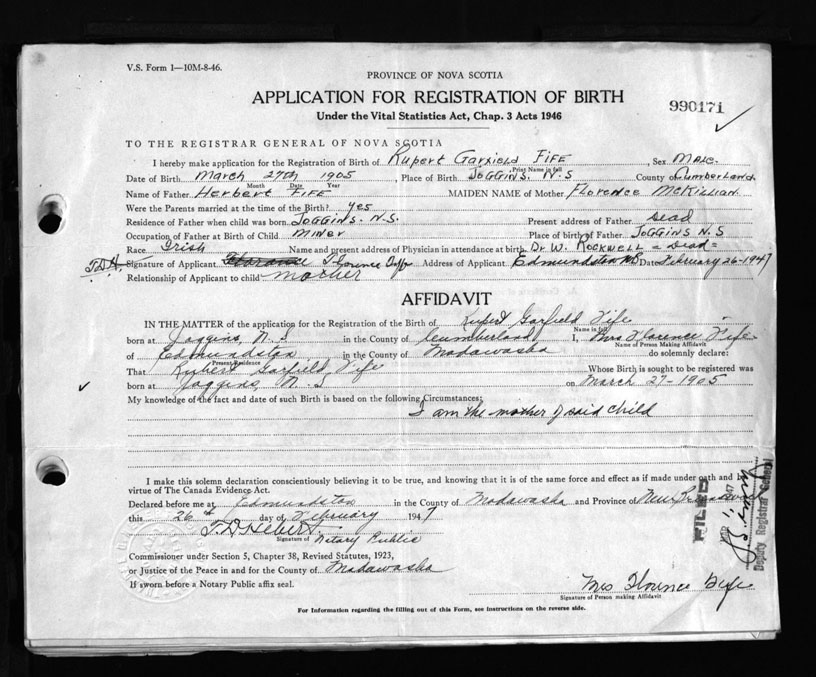 V.S. Form 1—10M-8-46.
PROVINCE OF NOVA SCOTIA
APPLICATION FOR REGISTRATION OF BIRTH
990171
Under the Vital Statistics Act, Chap. 3 Acts 1946
TO THE REGISTRAR GENERAL OF NOVA SCOTIA
I hereby make application for the Registration of Birth of Rupert Garfield FIFE, Sex Male.
Print Name in full
Date of Birth March 27th 1905, Place of Birth JOGGINS. N.S County of Cumberland.
Month Date Year
Name of Father Herbert FIFE MAIDEN NAME of Mother Florence McKillian.
Were the Parents married at time of the Birth? yes
Residence of Father when child was born JOGGINS. N.S. Present address of Father Dead
Occupation of Father at Birth of Child MINER Place of birth of Father JOGGINS N.S
Race Irish Name and present address of Physician in attendance at birth Dr W. ROCKWELL = Dead =
T.D.H. Signature of Applicant Florence Address of Applicant Edmundston N.B Date February 26-1947
Relationship of Applicant to child mother
AFFIDAVIT
IN THE MATTER of the application for the Registration of the Birth of Rupert Garfield Fife
Name in full
born at Joggins, N.S in the County of Cumberland I, Mrs Florence Fife
Name of Person Making Affidavit
of Edmundston in the County of Madawaska do solemnly declare:
Present Residence
That Rupert Garfield Fife Whose Birth is sought to be registered was
born at Joggins, N.S on March 27-1905
My knowledge of the fact and date of such Birth is based on the following Circumstances:
I am the mother of said child
I make this solemn declaration conscientiously believing it to be true, and knowing that it is of the same force and effect as if made under oath and by
virtue of The Canada Evidence Act.
Declared before me at Edmundston in the County of Madawaska and Province of New Brunswick
this 26th day of February 1947
T.D. Hebert.
Signature of Notary Public
Commissioner under Section 5, Chapter 38, Revised Statutes, 1923,
or Justice of the Peace in and for the County of Madawaska
If sworn before a Notary Public affix seal.
Mrs Florence Fife
Signature of Person making Affidavit
For Information regarding the filling out of this Form, see instructions on the reverse side.
FILED
1947
Deputy Registrar General